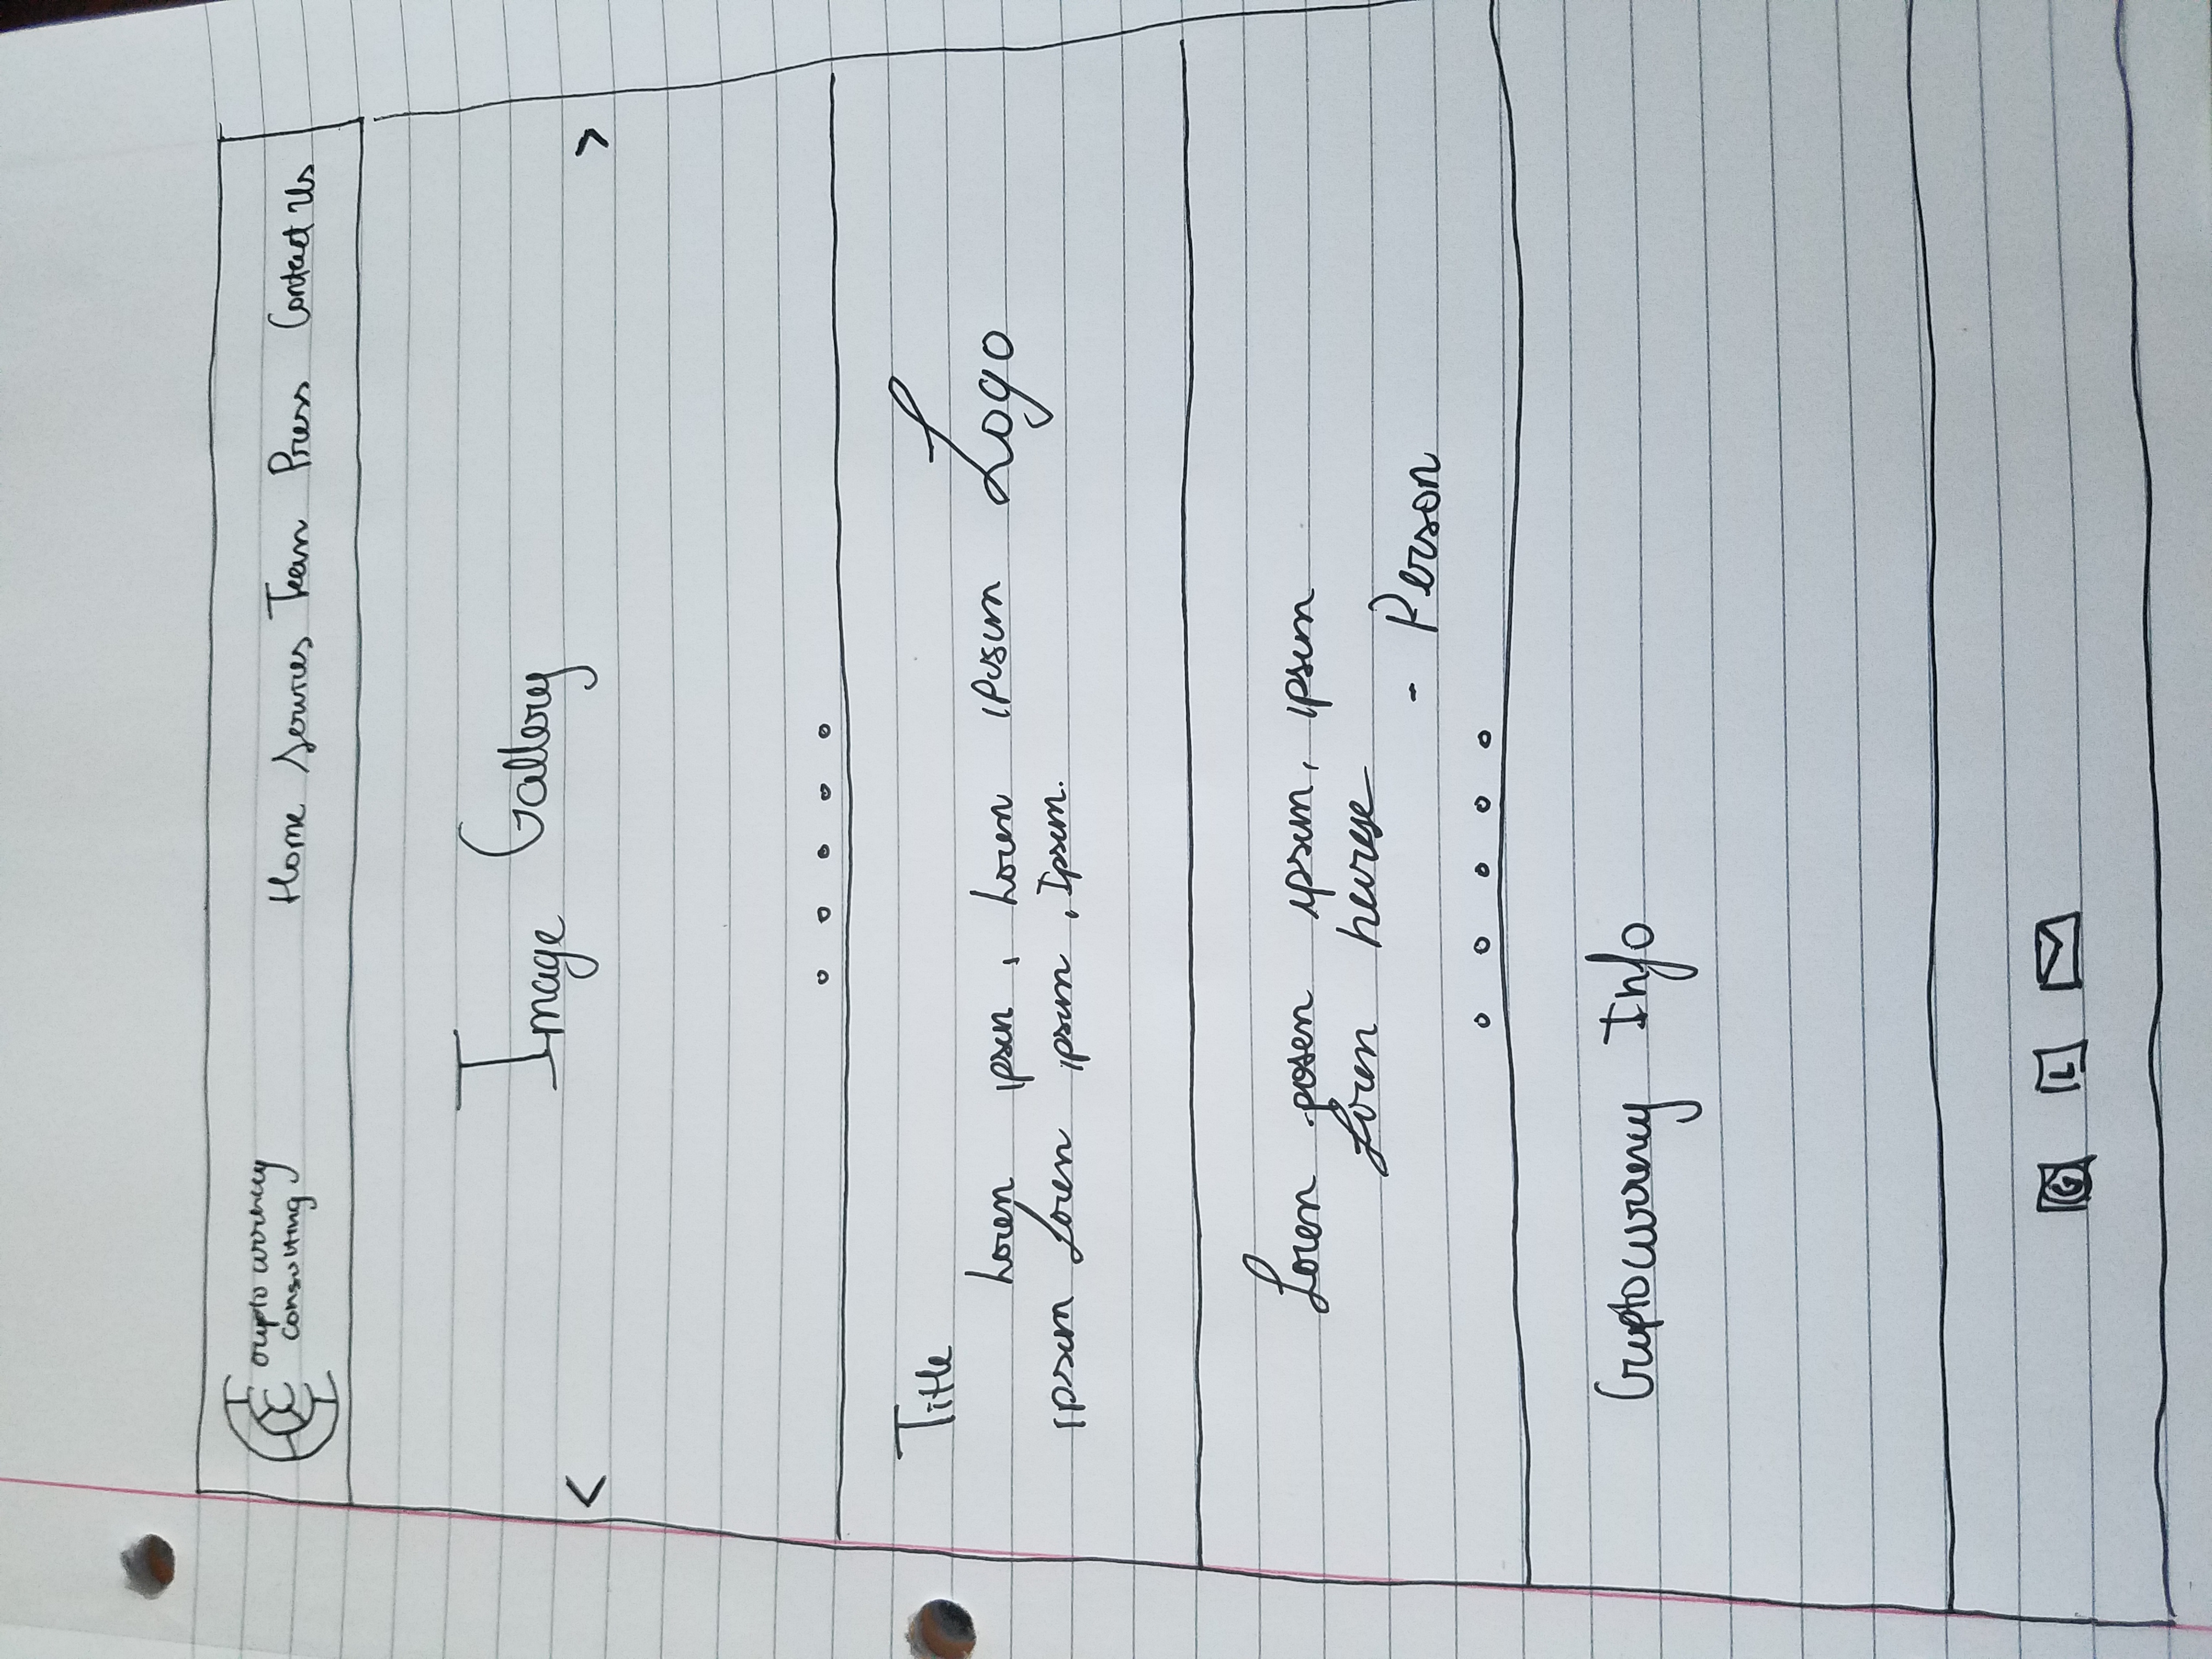 Cryptocurrency
Consulting
Home Services Team Press Contact Us
Image Gallery
< >
Title
Loren ipsen, Loren ipusum Logo
ipsum Loren ipsum, Ipsum.
Loren posen ipsum, ipsum
Loren
- Person
Cryptocurrency Info
G L